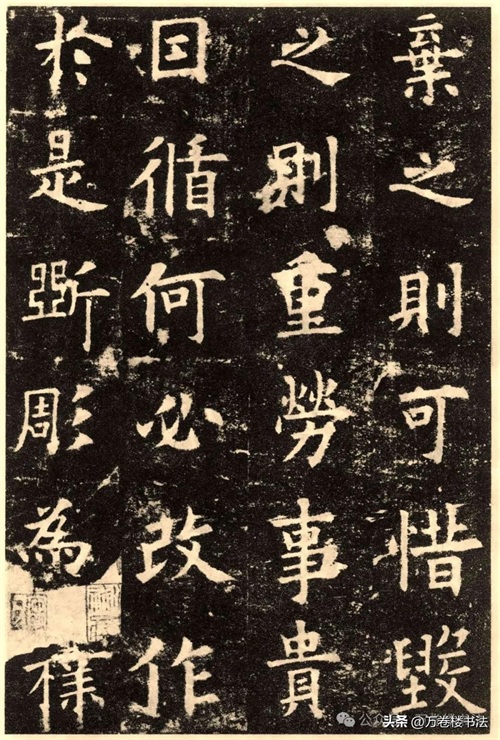 棄之則可惜毀
之則重勞事貴
因循何必改作
於是斲彫為樸
头条 @万卷楼书法